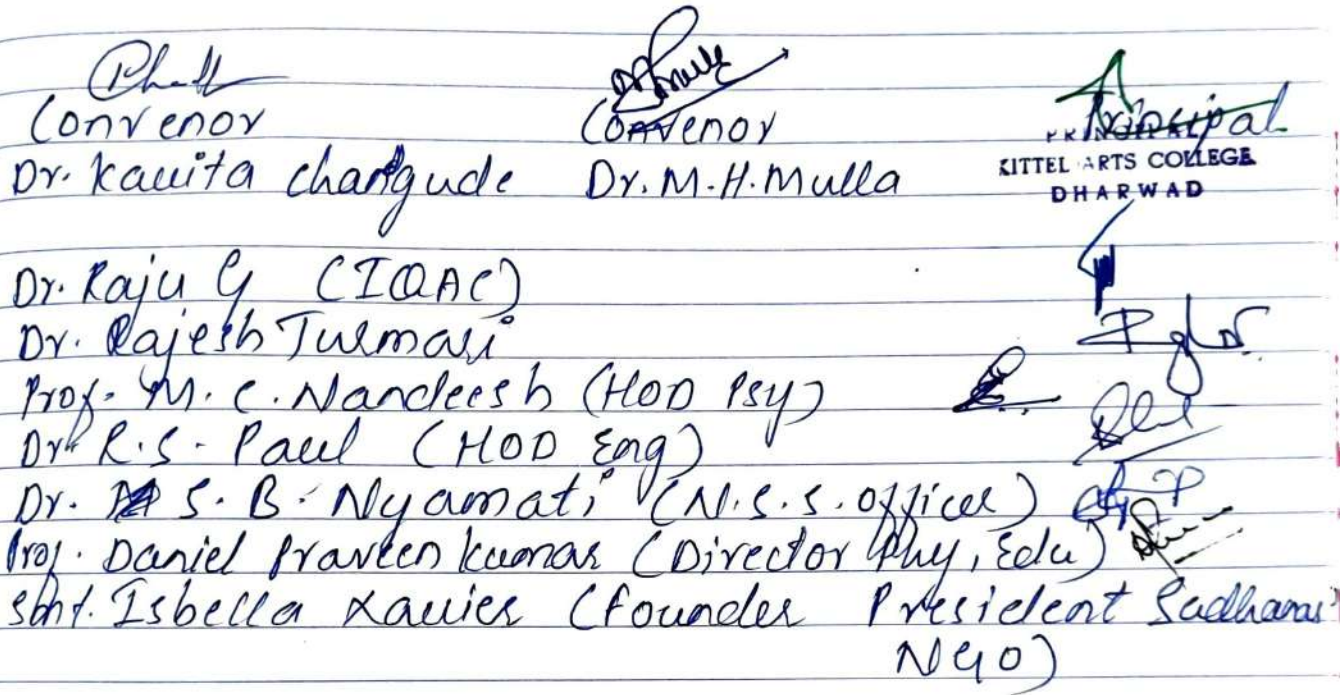 Convenor Convenor Principal
PRINCIPAL
Dr. Kavita Changude Dr. M. H. Mulla KITTEL ARTS COLLEGE
DHARWAD
Dr. Raju G (IQAC)
Dr. Rajesh Turmari
Prof. M. C. Nandeesh (HOD Psy)
Dr. R. S. Paul (HOD Eng)
Dr. S. B. Nyamati (N.S.S. Officer)
Prof. Daniel Praveen Kumar (Director Phy, Edu)
Smt. Isbella Xavier (Founder President Sadhana
NGO)